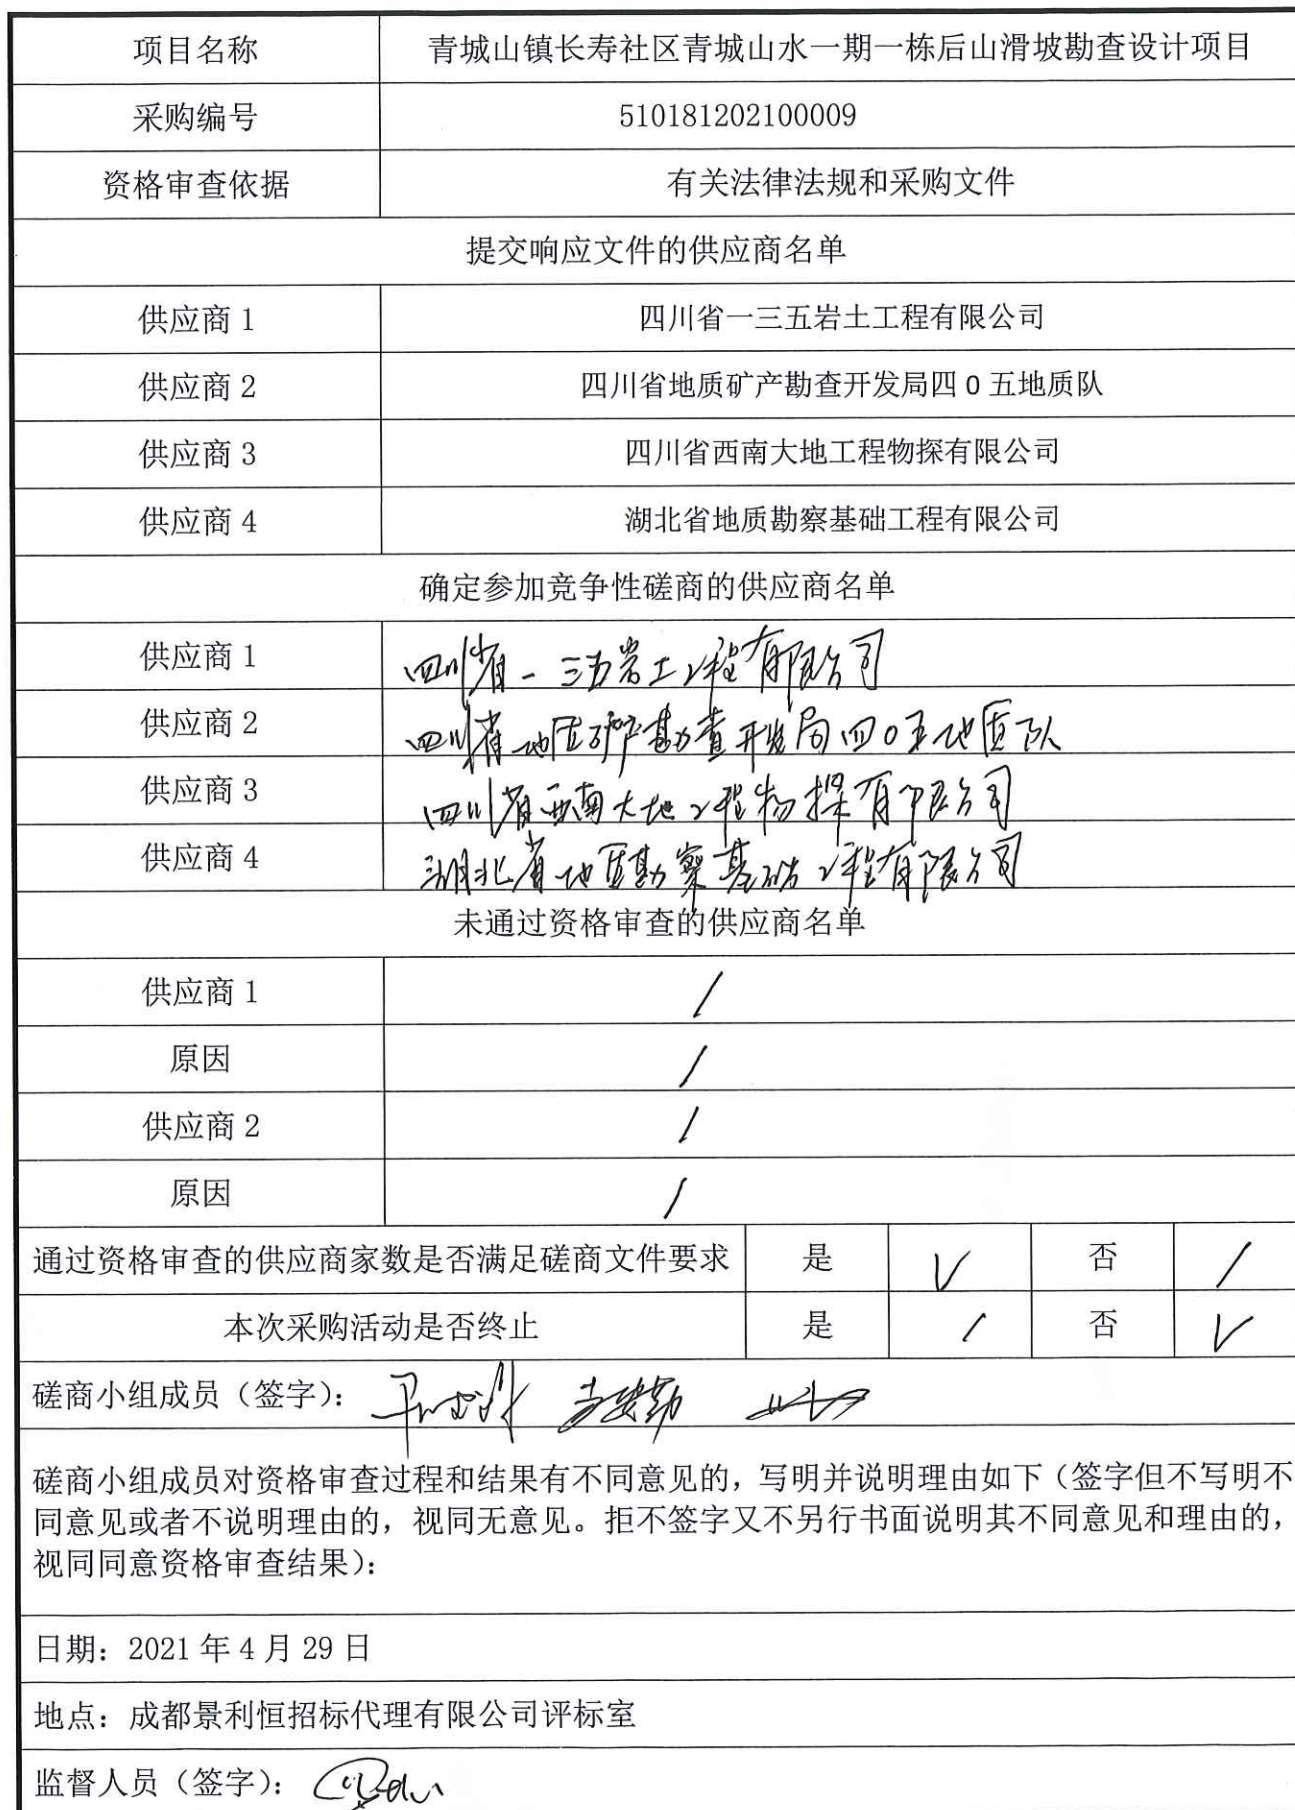 项目名称 青城山镇长寿社区青城山水一期一栋后山滑坡勘查设计项目
采购编号 510181202100009
资格审查依据 有关法律法规和采购文件
提交响应文件的供应商名单
供应商 1 四川省一三五岩土工程有限公司
供应商 2 四川省地质矿产勘查开发局四 0 五地质队
供应商 3 四川省西南大地工程物探有限公司
供应商 4 湖北省地质勘察基础工程有限公司
确定参加竞争性磋商的供应商名单
供应商 1 四川省一三五岩土工程有限公司
供应商 2 四川省地质矿产勘查开发局四0五地质队
供应商 3 四川省西南大地工程物探有限公司
供应商 4 湖北省地质勘察基础工程有限公司
未通过资格审查的供应商名单
供应商 1 /
原因 /
供应商 2 /
原因 /
通过资格审查的供应商家数是否满足磋商文件要求 是 √ 否 /
本次采购活动是否终止 是 / 否 √
磋商小组成员（签字）：
磋商小组成员对资格审查过程和结果有不同意见的，写明并说明理由如下（签字但不写明不
同意见或者不说明理由的，视同无意见。拒不签字又不另行书面说明其不同意见和理由的，
视同同意资格审查结果）：
日期：2021 年 4 月 29 日
地点：成都景利恒招标代理有限公司评标室
监督人员（签字）：